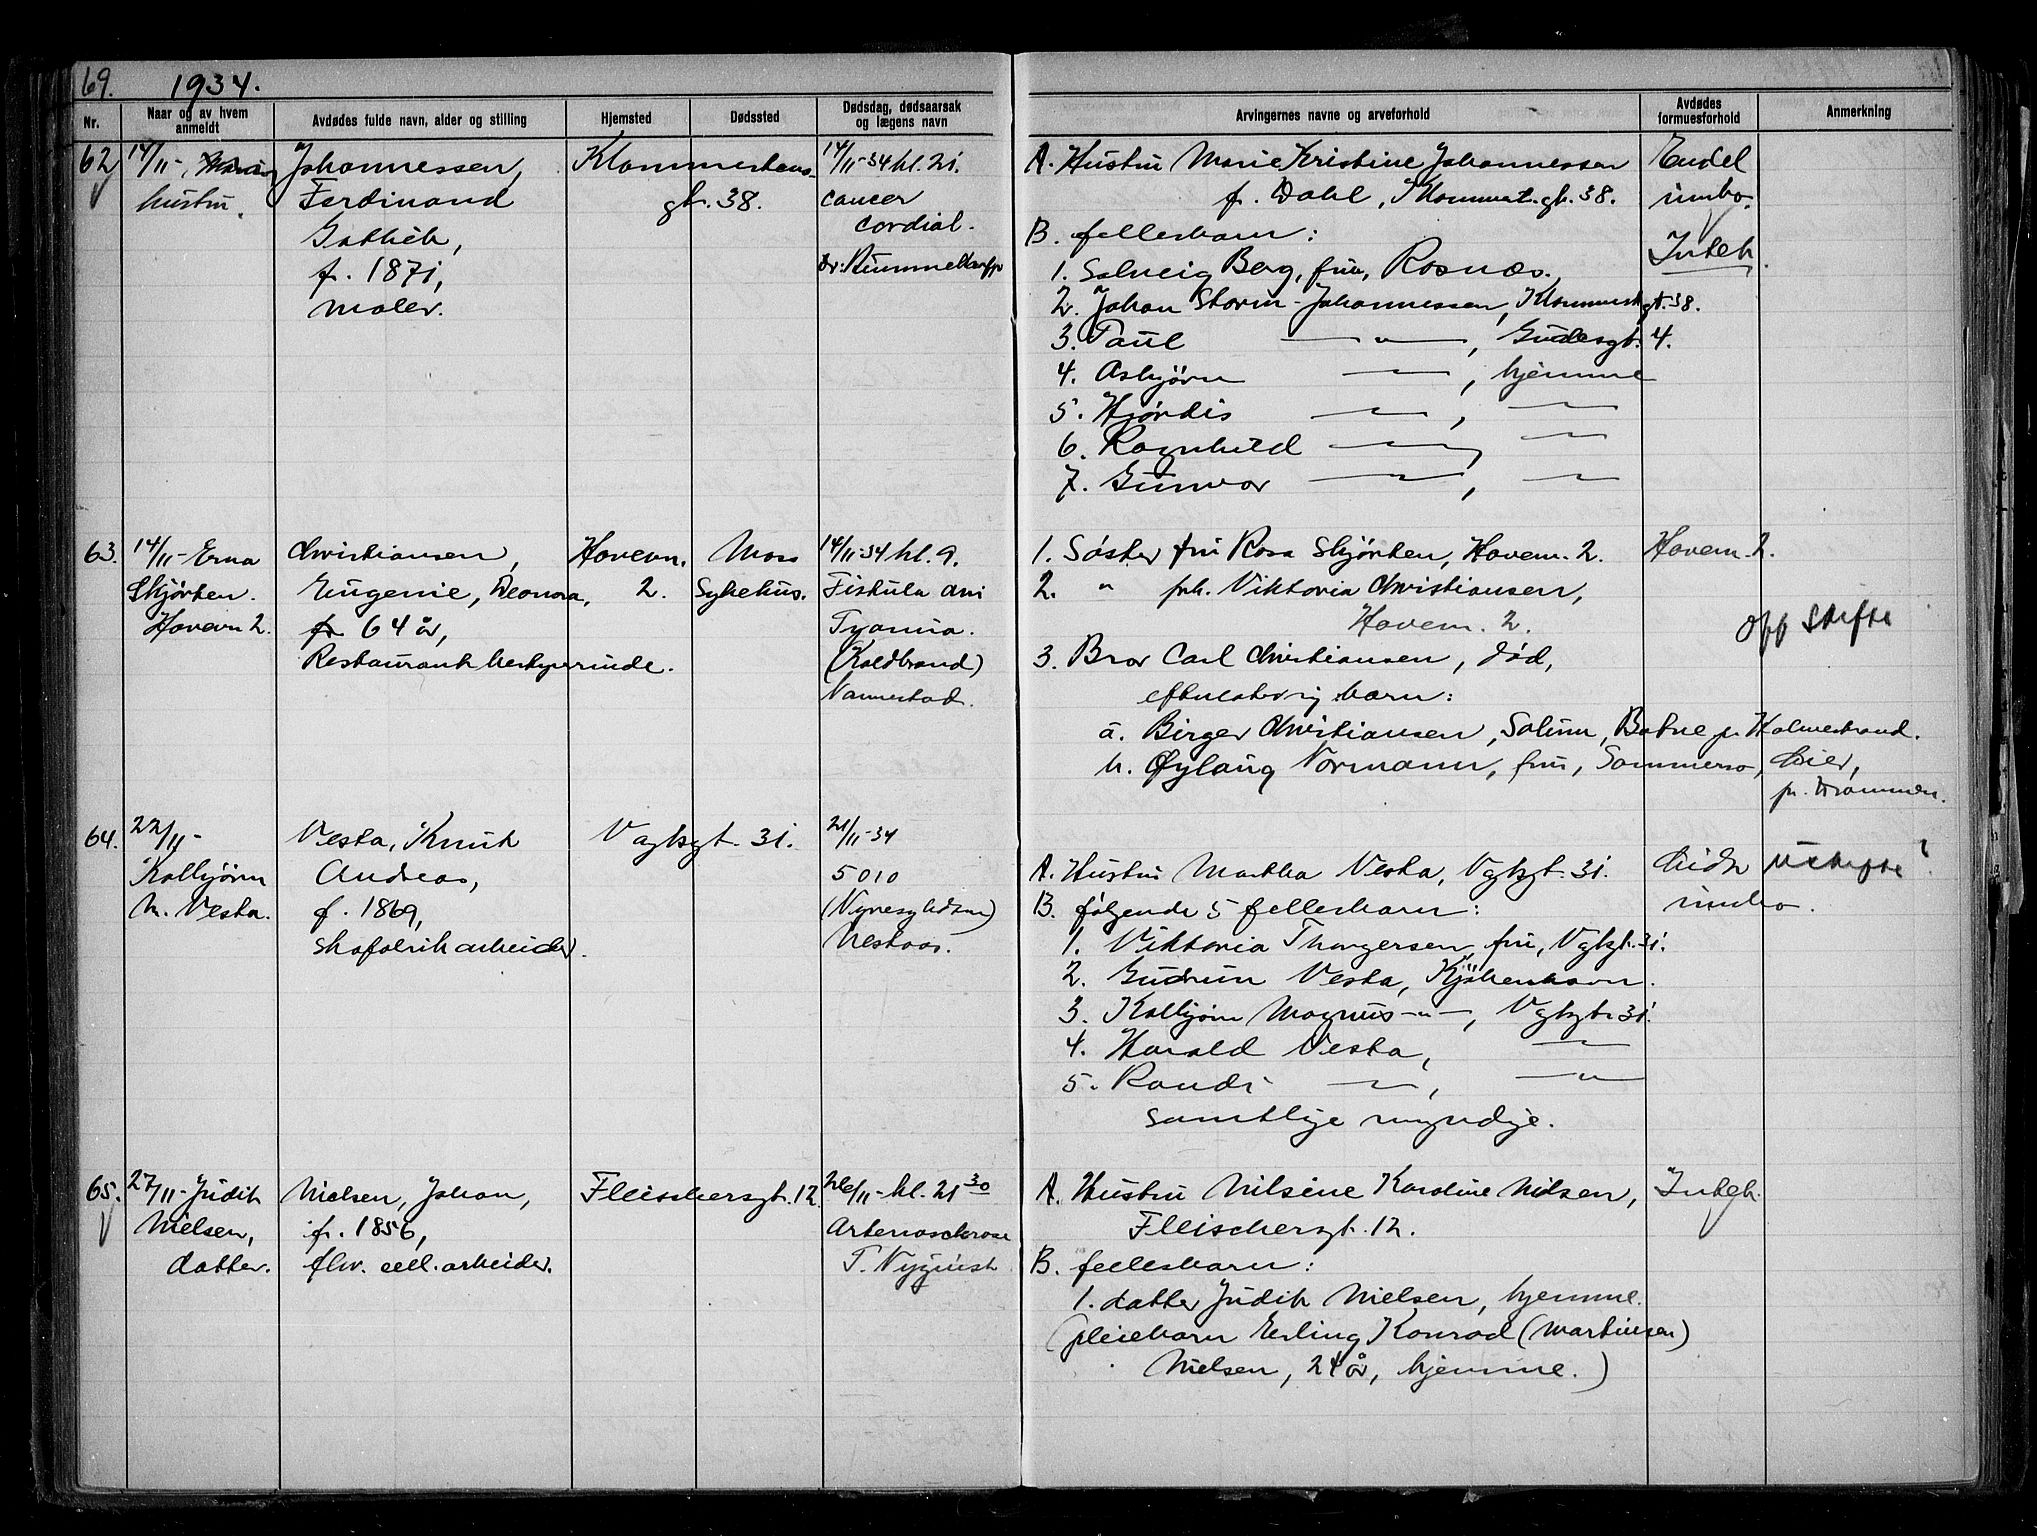 69. 1934.
Nr.
Naar og av hvem anmeldt
Avdødes fulde navn, alder og stilling
Hjemsted
Dødssted
Dødsdag, dødsaarsak og lægens navn
Arvingernes navne og arveforhold
Avdødes formuesforhold
Anmerkning
62
14/11 -
hustru.
Johannessen,
Ferdinand
f. 1871,
maler.
gt. 38.
14/11-34 kl. 21.
cancer
cardial.
A. Hustru Marie Kristine Johannessen
f. Dahl, gt. 38.
B. fellesbarn:
1. Solveig Berg, fru, Rosnæs.
2. Johan Storm-Johannessen, gt. 38.
3. Paul —"—, Gudesgt. 4.
4. Asbjørn —"—, hjemme
5. Hjördis —"—, —"—
6. Ragnhild —"—, —"—
7. Gunvor —"—, —"—
Endel
innbo.
Inteb.
63.
14/11 - Erna
Skjörten.
Hovevn 2.
Christiansen,
Eugenie, Deonora,
64 år,
Restaurantbestyrerinde.
Hovevn.
2.
Moss
Sykehus.
14/11-34 kl. 9.
Fistula ani
(Koldbrand)
Vannestad.
1. Søster fru Rosa Skjörten, Hovevn. 2.
2. " frk. Viktoria Christiansen,
Hovevn. 2.
3. Bror Carl Christiansen, død,
barn:
a. Birger Christiansen, Solum, Botne pr Holmestrand.
b. Øylaug Normann, fru, Lier,
pr. Drammen.
Hovevn. 2.
Off skifte
64.
22/11 -
Kolbjørn
M. Vesta.
Vesta, Knut
Andreas,
f. 1869,
skofabrikarbeider.
Vogtsgt. 31.
21/11-34
5010
Nestaas.
A. Hustru Martha Vesta, Vgtsgt. 31.
B. følgende 5 fellesbarn:
1. Viktoria Thorgersen, fru, Vgtsgt. 31.
2. Gudrun Vesta, Kjöbenhavn.
3. Kolbjørn Magnus —"—, Vgtsgt. 31.
4. Harald Vesta, —"—
5. Randi —"—, —"—
samtlige myndige.
Lidt
innbo.
Uskifte?
65.
27/11 - Judith
Nielsen,
datter.
Nielsen, Johan,
f. 1856,
fhv. cell. arbeider.
Fleischersgt. 12.
26/11 - kl. 21 30
Arterioschlerose
T. Nyquist
A. Hustru Nilsine Karoline Nielsen,
Fleischersgt. 12.
B. fellesbarn:
1. datter Judith Nielsen, hjemme.
(pleiebarn Erling Konrad (Martinsen)
Nielsen, 24 år, hjemme.)
Inteb.